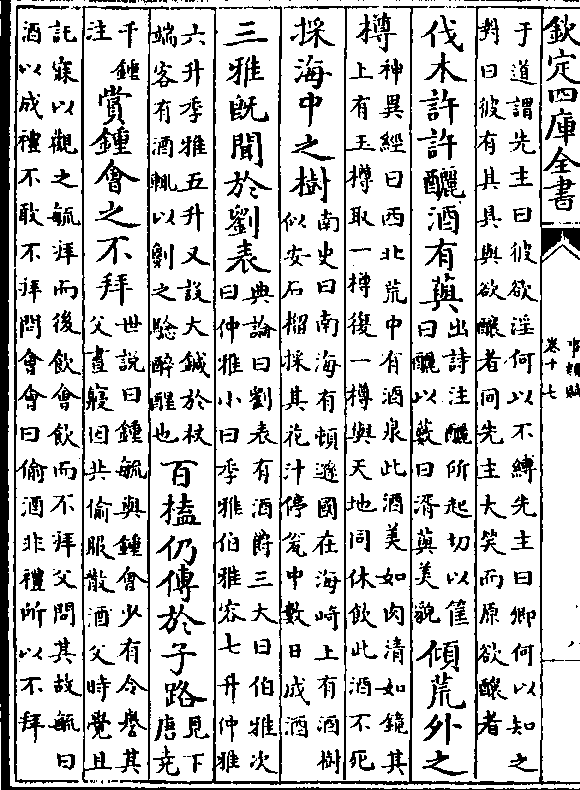 欽定四庫全書
事類賦
卷十七
八
于道謂先主曰彼欲淫何以不縛先主曰卿何以知之
對曰彼有其具與欲釀者同先主大笑而原欲釀者
伐木許許釃酒有藇出詩注釃所起切以筐曰釃以藪曰湑藇美貌傾荒外之
樽神異經曰西北荒中有酒泉此酒美如肉清如鏡其上有玉樽取一樽復一樽與天地同休飲此酒不死
採海中之樹南史曰南海有頓遜國在海崎上有酒樹似安石榴採其花汁停瓮中數日成酒
三雅旣聞於劉表典論曰劉表有酒爵三大曰伯雅次曰仲雅小曰季雅伯雅容七升仲雅
六升季雅五升又設大鍼於杖端客有酒輒以劖之驗醉醒也百榼仍傳於子路見下唐堯
千鍾注賞鍾會之不拜世說曰鍾毓與鍾會少有令譽其父晝寢因共偷服散酒父時覺且
託寐以觀之毓拜而後飲會飲而不拜父問其故毓曰
酒以成禮不敢不拜問會會曰偷酒非禮所以不拜